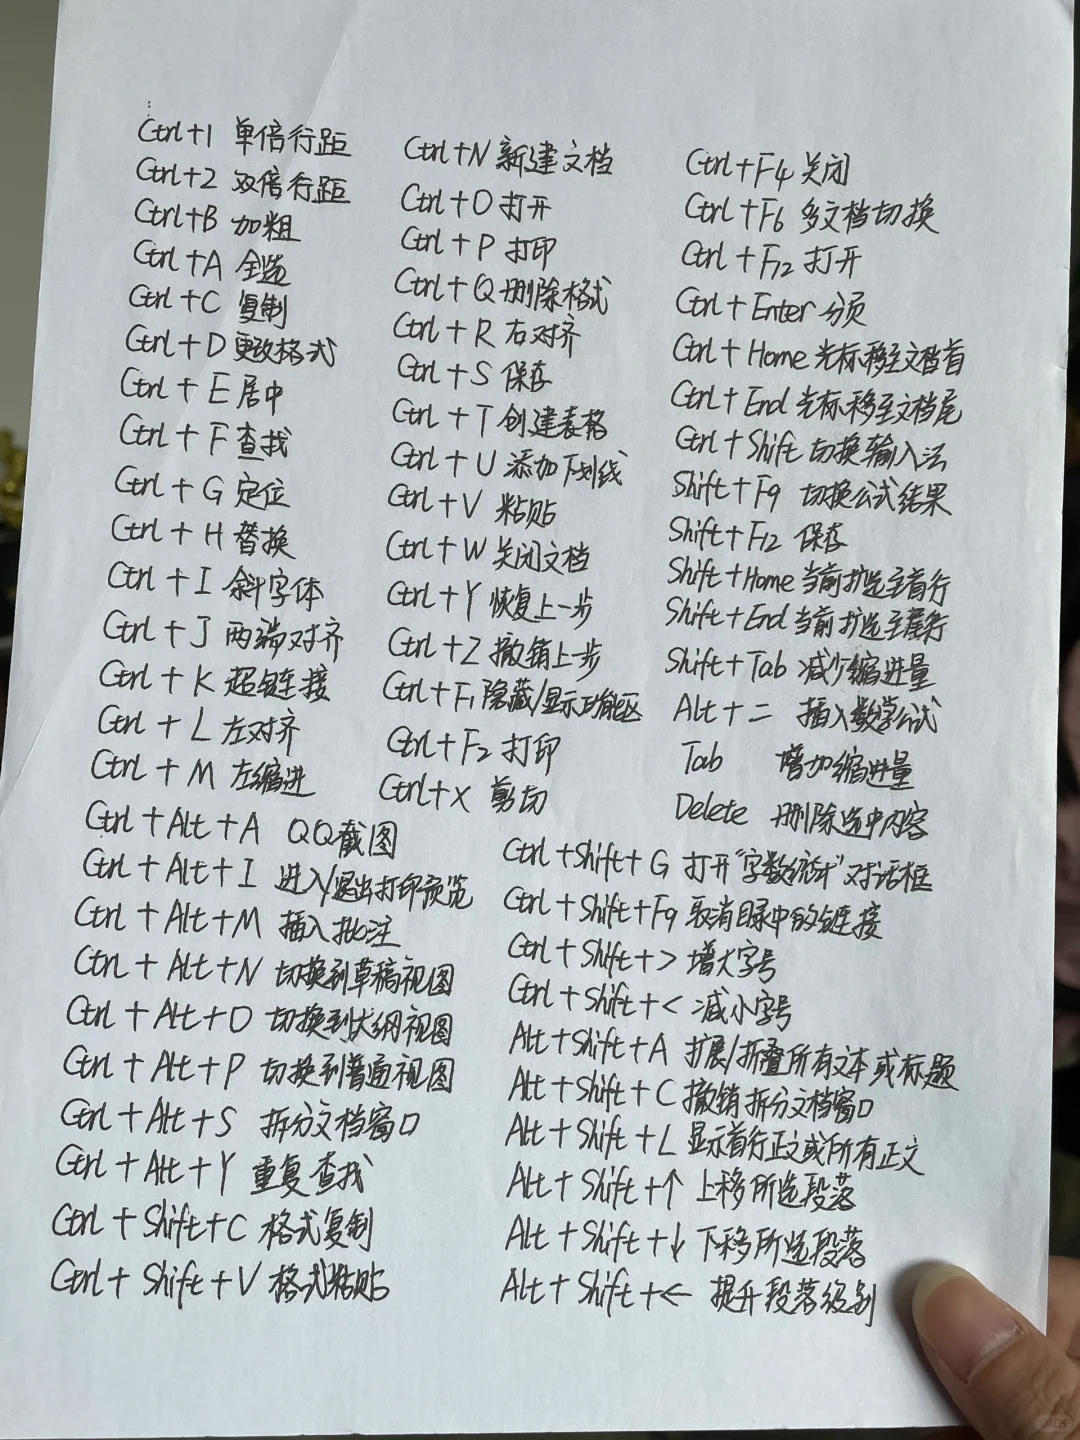 Ctrl+1 单倍行距
Ctrl+2 双倍行距
Ctrl+B 加粗
Ctrl+A 全选
Ctrl+C 复制
Ctrl+D 更改格式
Ctrl+E 居中
Ctrl+F 查找
Ctrl+G 定位
Ctrl+H 替换
Ctrl+I 斜字体
Ctrl+J 两端对齐
Ctrl+K 超链接
Ctrl+L 左对齐
Ctrl+M 左缩进
Ctrl+N 新建文档
Ctrl+O 打开
Ctrl+P 打印
Ctrl+Q 删除格式
Ctrl+R 右对齐
Ctrl+S 保存
Ctrl+T 创建表格
Ctrl+U 添加下划线
Ctrl+V 粘贴
Ctrl+W 关闭文档
Ctrl+Y 恢复上一步
Ctrl+Z 撤销上一步
Ctrl+F1 隐藏/显示功能区
Ctrl+F2 打印
Ctrl+X 剪切
Ctrl+F4 关闭
Ctrl+F6 多文档切换
Ctrl+F12 打开
Ctrl+Enter 分页
Ctrl+Home 光标移至文档首
Ctrl+End 光标移至文档尾
Ctrl+Shift 切换输入法
Shift+F9 切换公式结果
Shift+F12 保存
Shift+Home 当前扩选至首行
Shift+End 当前扩选至尾行
Shift+Tab 减少缩进量
Alt+= 插入数学公式
Tab 增加缩进量
Delete 删除选中内容
Ctrl+Alt+A QQ截图
Ctrl+Alt+I 进入/退出打印预览
Ctrl+Alt+M 插入批注
Ctrl+Alt+N 切换到草稿视图
Ctrl+Alt+O 切换到大纲视图
Ctrl+Alt+P 切换到普通视图
Ctrl+Alt+S 拆分文档窗口
Ctrl+Alt+Y 重复查找
Ctrl+Shift+C 格式复制
Ctrl+Shift+V 格式粘贴
Ctrl+Shift+G 打开"字数统计"对话框
Ctrl+Shift+F9 取消目录中的链接
Ctrl+Shift+> 增大字号
Ctrl+Shift+< 减小字号
Alt+Shift+A 扩展/折叠所有文本或标题
Alt+Shift+C 撤销拆分文档窗口
Alt+Shift+L 显示首行正文或所有正文
Alt+Shift+↑ 上移所选段落
Alt+Shift+↓ 下移所选段落
Alt+Shift+← 提升段落级别